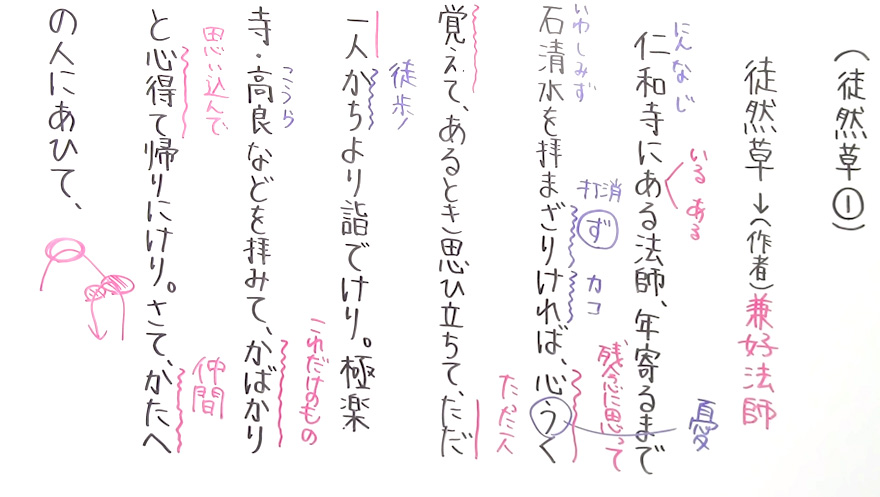 (徒然草①)
徒然草→(作者)兼好法師
いる ある
にんなじ
仁和寺にある法師、年寄るまで
憂
いわしみず
打消 ず カコ 残念に思って
石清水を拝まざりければ、心うく
覚えて、あるとき思ひ立ちて、ただ
たった一人
徒歩
一人かちより詣でけり。極楽
こうら これだけのもの
寺・高良などを拝みて、かばかり
思い込んで 仲間
と心得て帰りにけり。さて、かたへ
の人にあひて、